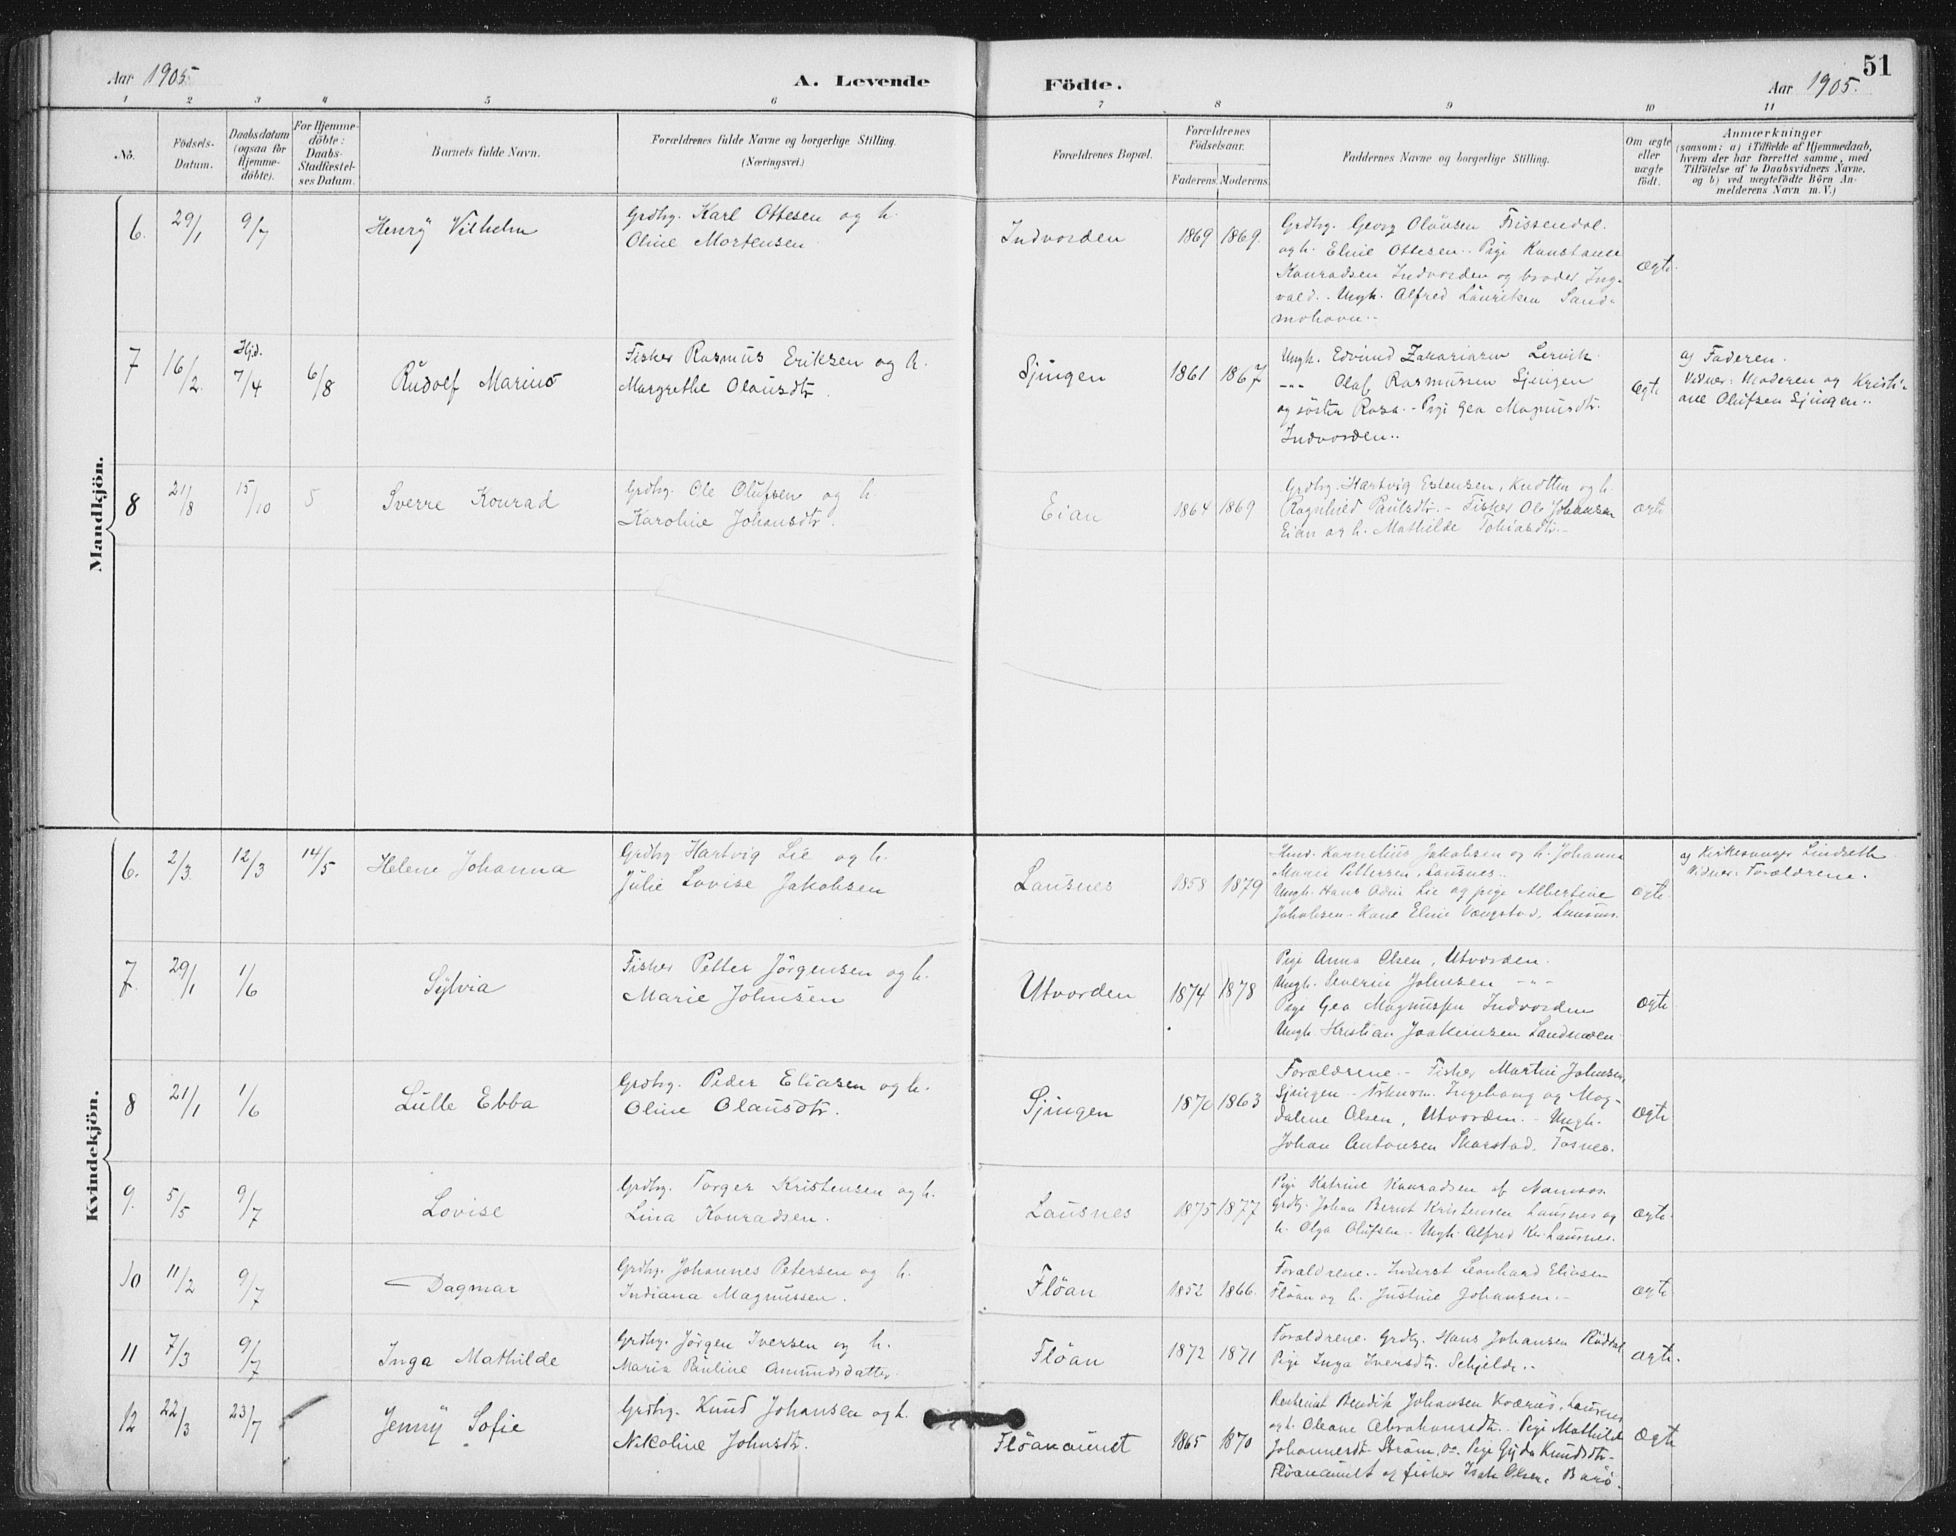 Aar 1905
A. Levende
Födte.
Aar 1905.
51
1 2 3 4 5 6 7 8 9 10 11
No.
Födsels-
Datum.
Daabsdatum
(ogsaa for
Hjemme-
döbte).
For Hjemme-
döbte:
Daabs-
Stadfæstel-
ses Datum.
Barnets fulde Navn.
Forældrenes fulde Navne og borgerlige Stilling.
(Næringsvei.)
Forældrenes Bopæl.
Forældrenes
Födselsaar.
Faderens. Moderens.
Faddernes Navne og borgerlige Stilling.
Om ægte
eller
uægte
födt.
Anmærkninger
(saasom: a) i Tilfælde af Hjemmedaab,
hvem der har forrettet samme, med
Tilföielse af to Daabsvidners Navne,
og b) ved uægtefödte Börn An-
melderens Navn m. V.)
Mandkjön.
6. 29/1 9/7 Henrÿ Vilhelm
Grdbrg. Karl Ottesen og h.
Oline Mortensen.
Indvorden 1869 1869.
Grdbrg. Georg Olausen Frissendal.
og h. Eline Ottesen. Pige Konstanse
Konradsen Indvorden og broder Ing-
vald. Ungk. Alfred Lauritsen Sand-
mohavn.
ægte
7 16/2. Hjd. 7/4 6/8 Rudolf Marino
Fisker Rasmus Eriksen og h.
Margrethe Olausdtr.
Sjingen 1861 1867
Ungk. Edvind Zakariasen Lervik.
-"- Olaf Rasmussen Sjingen
og söster Rosa. - Pige Gea Magnusdtr.
Indvorden..
ægte
a) Faderen.
Vidner: Moderen og Kristi-
ane Olufsen Sjingen..
8 21/8 15/10 5 Sverre Konrad
Grdbrg. Ole Olufsen og h.
Karoline Johansdtr.
Eian 1864 1869
Grdbrg. Hartvig Estensen, Knotten og h.
Ragnhild Paulsdtr. - Fisker Ole Johansen
Eian og h. Mathilde Tobiasdtr. -
ægte
Kvindekjön.
6. 2/3. 12/3 14/5 Helene Johanna
Grdbrg Hartvig Lie og h.
Julie Lovise Jakobsen
Lausnes 1858 1879
Kornelius Jakobsen og h. Johanna
Marie Pettersen, Lausnes..
Ungk. Hans Odin Lie og pige Albertine
Jakobsen. Kone Eline Vængstad, Lausnes.
ægte.
a) Kirkesanger Lindseth
Vidner: Forældrene.
7. 29/1 1/6 Sÿlvia
Fisker Petter Jörgensen og h.
Marie Johnsen
Utvorden 1874 1878
Pige Anna Olsen, Utvorden.
Ungk. Severin Johnsen -"-
Pige Gea Magnussen Indvorden
Ungk. Kristian Joakimsen
ægte.
8 21/1 1/6 Lulle Ebba
Grdbrg. Peder Eliasen og h.
Oline Olausdtr.
Sjingen 1870 1863
Forældrene. - Fisker Martin Johnsen,
Sjingen - Ingeborg og Mag-
dalene Olsen, Utvorden. - Ungk.
Johan Antonsen Skorstad, Fosnes.
ægte
9. 5/5 9/7 Lovise
Grdbrg. Torger Kristensen og h.
Lina Konradsen.
Lausnes 1875 1877
Pige Katrine Konradsen af Namsos
Grdbrg. Johan Bernt Kristensen Lausnes og
h. Olga Olufsen. Ungk. Alfred Kr. Lausnes.
ægte.
10 11/2 9/7 Dagmar
Grdbrg. Johannes Petersen og h.
Indiana Magnussen.
Flöan 1852 1866.
Forældrene.. Inderst Leonhard Eliasen
Flöan og h. Justine Johansen. -
ægte.
11 7/3 9/7 Inga Mathilde
Grdbrg. Jörgen Iversen og h.
Maria Pauline Amundsdatter.
Flöan 1872 1871
Forældrene. Grdbrg. Hans Johansen Rödsal
Pige Inga Iversdtr. Schjelde..
ægte.
12 22/3 23/7 Jennÿ Sofie
Grdbrg. Knud Johansen og h.
Nikoline Johnsdtr.
Flöanaunet 1865 1870
Bendik Johansen Kvernö, Lausnes
og h. Oleane Abrahamsdtr. Pige Mathilde
Johannesdtr Ström, Pige Gyda Knudsdtr.
Flöanaunet og fisker Isak Olsen,
ægte